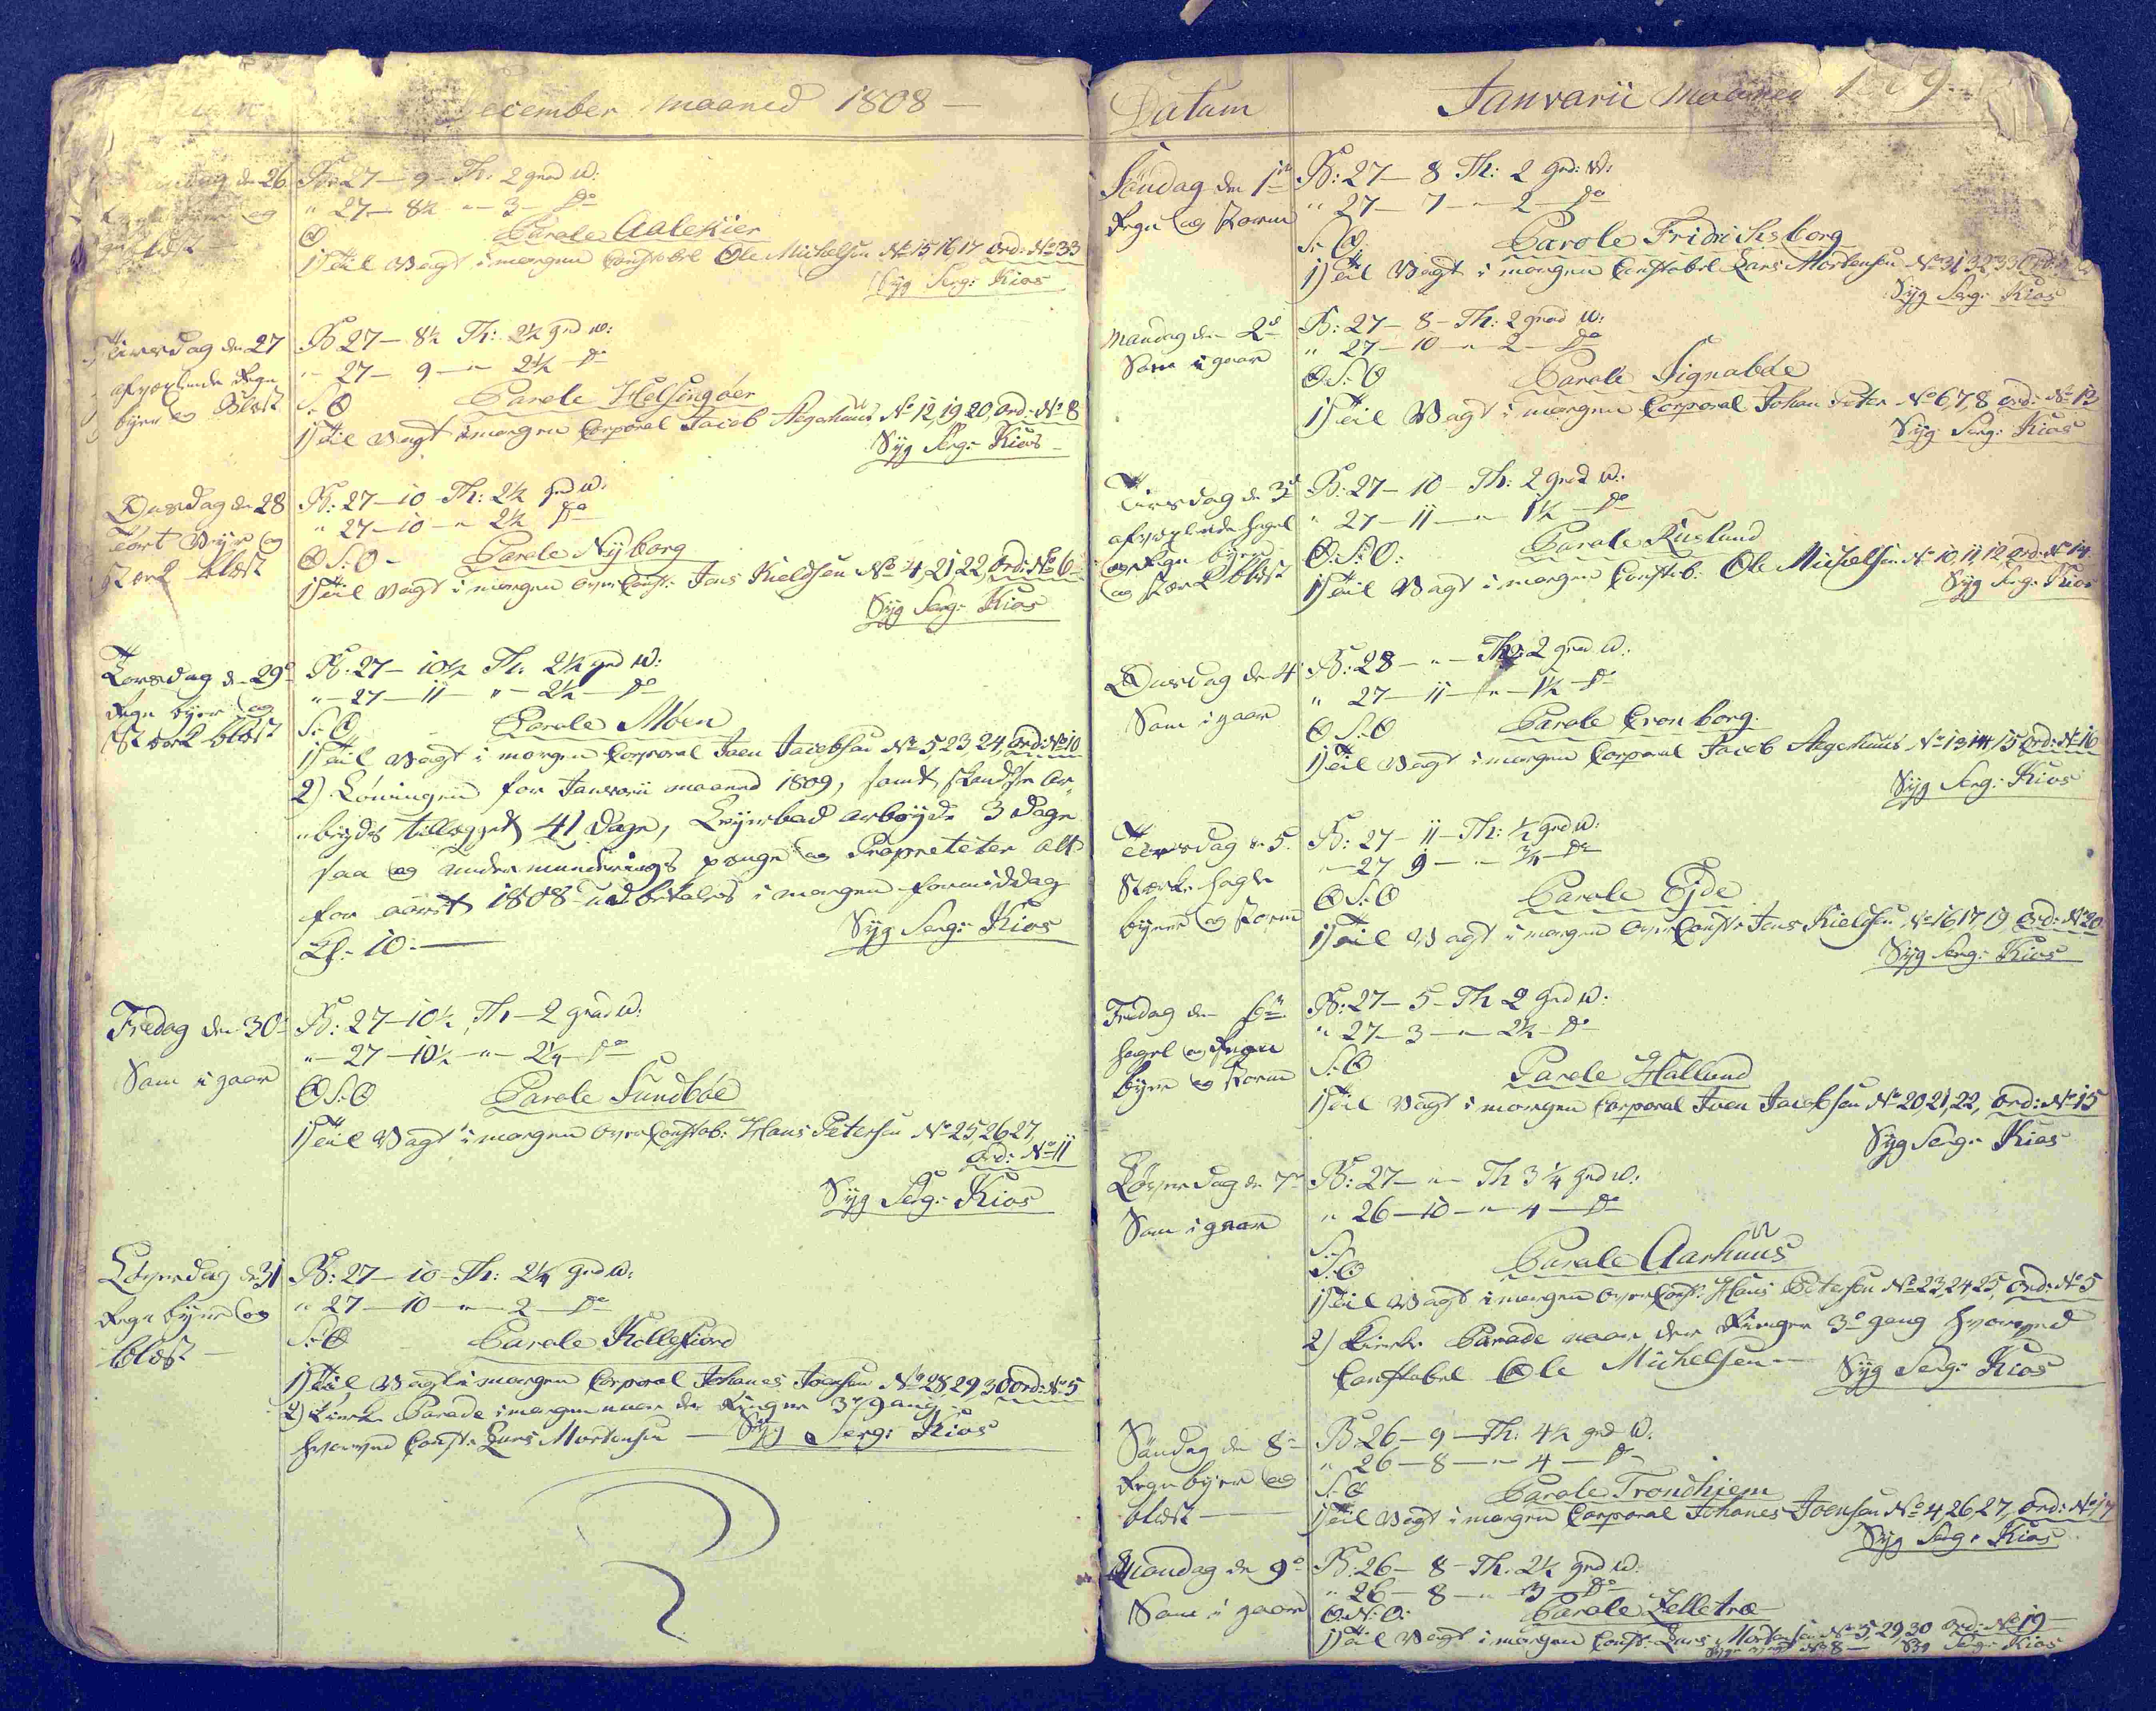 December maaned 1808 —
dag de 26
og
blæst
B: 27 — 9 — Th: 2 grd W:
" 27 — 8½ " — 3 — Do
O
Parole Aalekier
1) Til Vagt i morgen Constabel Ole Michelsen No 15,16,17 Ord: No 33
Syg Serg: Kios
Tirsdag den 27
afvexlende Regn
byer og Blæst
B 27 — 8½ Th: 2½ grd W:
" 27 — 9 — " 2½ — Do
S: O
Parole Helsingøer
1) Til Vagt i morgen Corporal Jacob Aegehuus No 12,19,20, Ord: No 8
Syg Serg: Kios
Onsdag den 28
Tört Veyr og
stærk blæst
B: 27 — 10 — Th: 2½ grd W:
" 27 — 10 — " 2½ Do
O S: O —
Parole Nyborg
1) Til Vagt i morgen OverConst: Jens Kieldsen No 4,21,22, Ord: No 6
Syg Serg: Kios
Torsdag d. 29d
Regn byer og
Stærk blæst
B: 27 — 10½ Th: 2½ grd W:
" — 27 — 11 — " — 2½ — Do
S: O
Parole Möen
1) Til Vagt i morgen Corporal Joen Jacobsen No 5,23 24, Ord: No 10
2) Lönningen for Januarii maaned 1809, samt skandse Ar-
"beyds tillægget 41 Dage, Leyerbad arbeyde 3 Dage
saa og Undermunderings penge og Propreteter alt
for aaret 1808 udbetales i morgen formiddag
Kl: 10. —
Syg Serg: Kios
Fredag den 30d
Som i gaar
B: 27 — 10½ Th — 2 grad W:
" — 27 — 10½ — " — 2¼ — Do
O S: O
Parole Sundbøe
1) Til Vagt i morgen Over Constab: Hans Petersen No 25 26 27,
Ord: No 11
Syg Serg: Kios
Löverdag d. 31
Regn byer og
blæst —
B: 27 — 10 — Th: 2¼ grd W:
" 27 — 10 — " — 2 — Do
S: O
Parole Kollefiord
1) Til Vagt i morgen Corporal Johanes Joensen No 28,29 30 Ord: No 5
2) Kirke Parade i morgen naar der Ringer 3de gang
hvorved Const: Lars Mortensen — Syg Serg: Kios
Datum
Januarii Maaned 1809 —
Söndag den 1te
Regn og storm
B: 27 — 8 Th: 2 grd: W:
" 27 — 7 — " — 2 — Do
S: O
Parole Fridrichsborg
1) Til Vagt i morgen Constabel Lars Mortensen No 31 32 33 Ord:
Syg Serg: Kios
Mandag den 2d
Som i gaar
B: 27 — 8 — Th: 2 grad W:
" 27 — 10 — " — 2 — Do
O S: O
Parole Signabøe
1) Til Vagt i morgen Corporal Johan Peter No 6,7,8 Ord: No 13
Syg Serg: Kios
Tirsdag de 3d
afvexlende hagel
og Regn byer
og stærk blæst
B: 27 — 10 — Th: 2 grd W:
" 27 — 11 — " — 1½ — Do
O. S: O:
Parole Rusland
1) Til Vagt i morgen Constab: Ole Michelsen No 10,11,12, Ord: No 14
Syg Serg: Kios
Onsdag de 4
Som i gaar
B: 28 — " — Th: 2 grd W:
" 27 — 11 — " — 1½ — Do
O S: O
Parole Cronborg
1) Til Vagt i morgen Corporal Jacob Aegehuus No 13 14 15 Ord: No 16
Syg Serg: Kios
Torsdag d. 5.
Stærke hagle
byer og storm
B: 27 — 11 — Th: ½ grd W:
" — 27 9 — " — ¾ — Do
O S: O
Parole Ejde
1) Til Vagt i morgen Over Const: Jens Kieldsen No 16 17 19 Ord: No 20
Syg Serg: Kios
Fredag den 6te
hagel og Regn
byer og storm
B: 27 — 5 — Th 2 grd W:
" 27 — 3 — " — 2½ — Do
S: O
Parole Halland
1) Til Vagt i morgen Corporal Joen Jacobsen No 20 21,22, Ord: No 15
Syg Serg: Kios
Löverdag de 7de
Som i gaar
B: 27 — " — Th 3¼ grd W:
" 26 — 10 — " — 4 — Do
S: O
Parole Aarhuus
1) Til Vagt i morgen Over Const: Hans Petersen No 23,24 25, Ord: No 5
2) Kirke Parade naar der Ringer 3d gang hvorved
Constabel Ole Michelsen — Syg Serg: Kios
Söndag den 8de
Regn byer og
blæst —
B: 26 — 9 — Th: 4½ grd W:
" 26 — 8 — " — 4 — Do
S: O
Parole Trondhiem
1) Til Vagt i morgen Corporal Johanes Joensen No 4,26,27, Ord: No 17
Syg Serg: Kios
Mondag de 9d
Som i gaar
B: 26 — 8 — Th: 2½ grd W:
" 26 — 8 — " — 3 — Do
O: N: O:
Parole Zelletræ
1) Til Vagt i morgen Const: Lars Mortensen No 5, 29 30 Ord: No 19 —
No 8 — Syg Serg: Kios